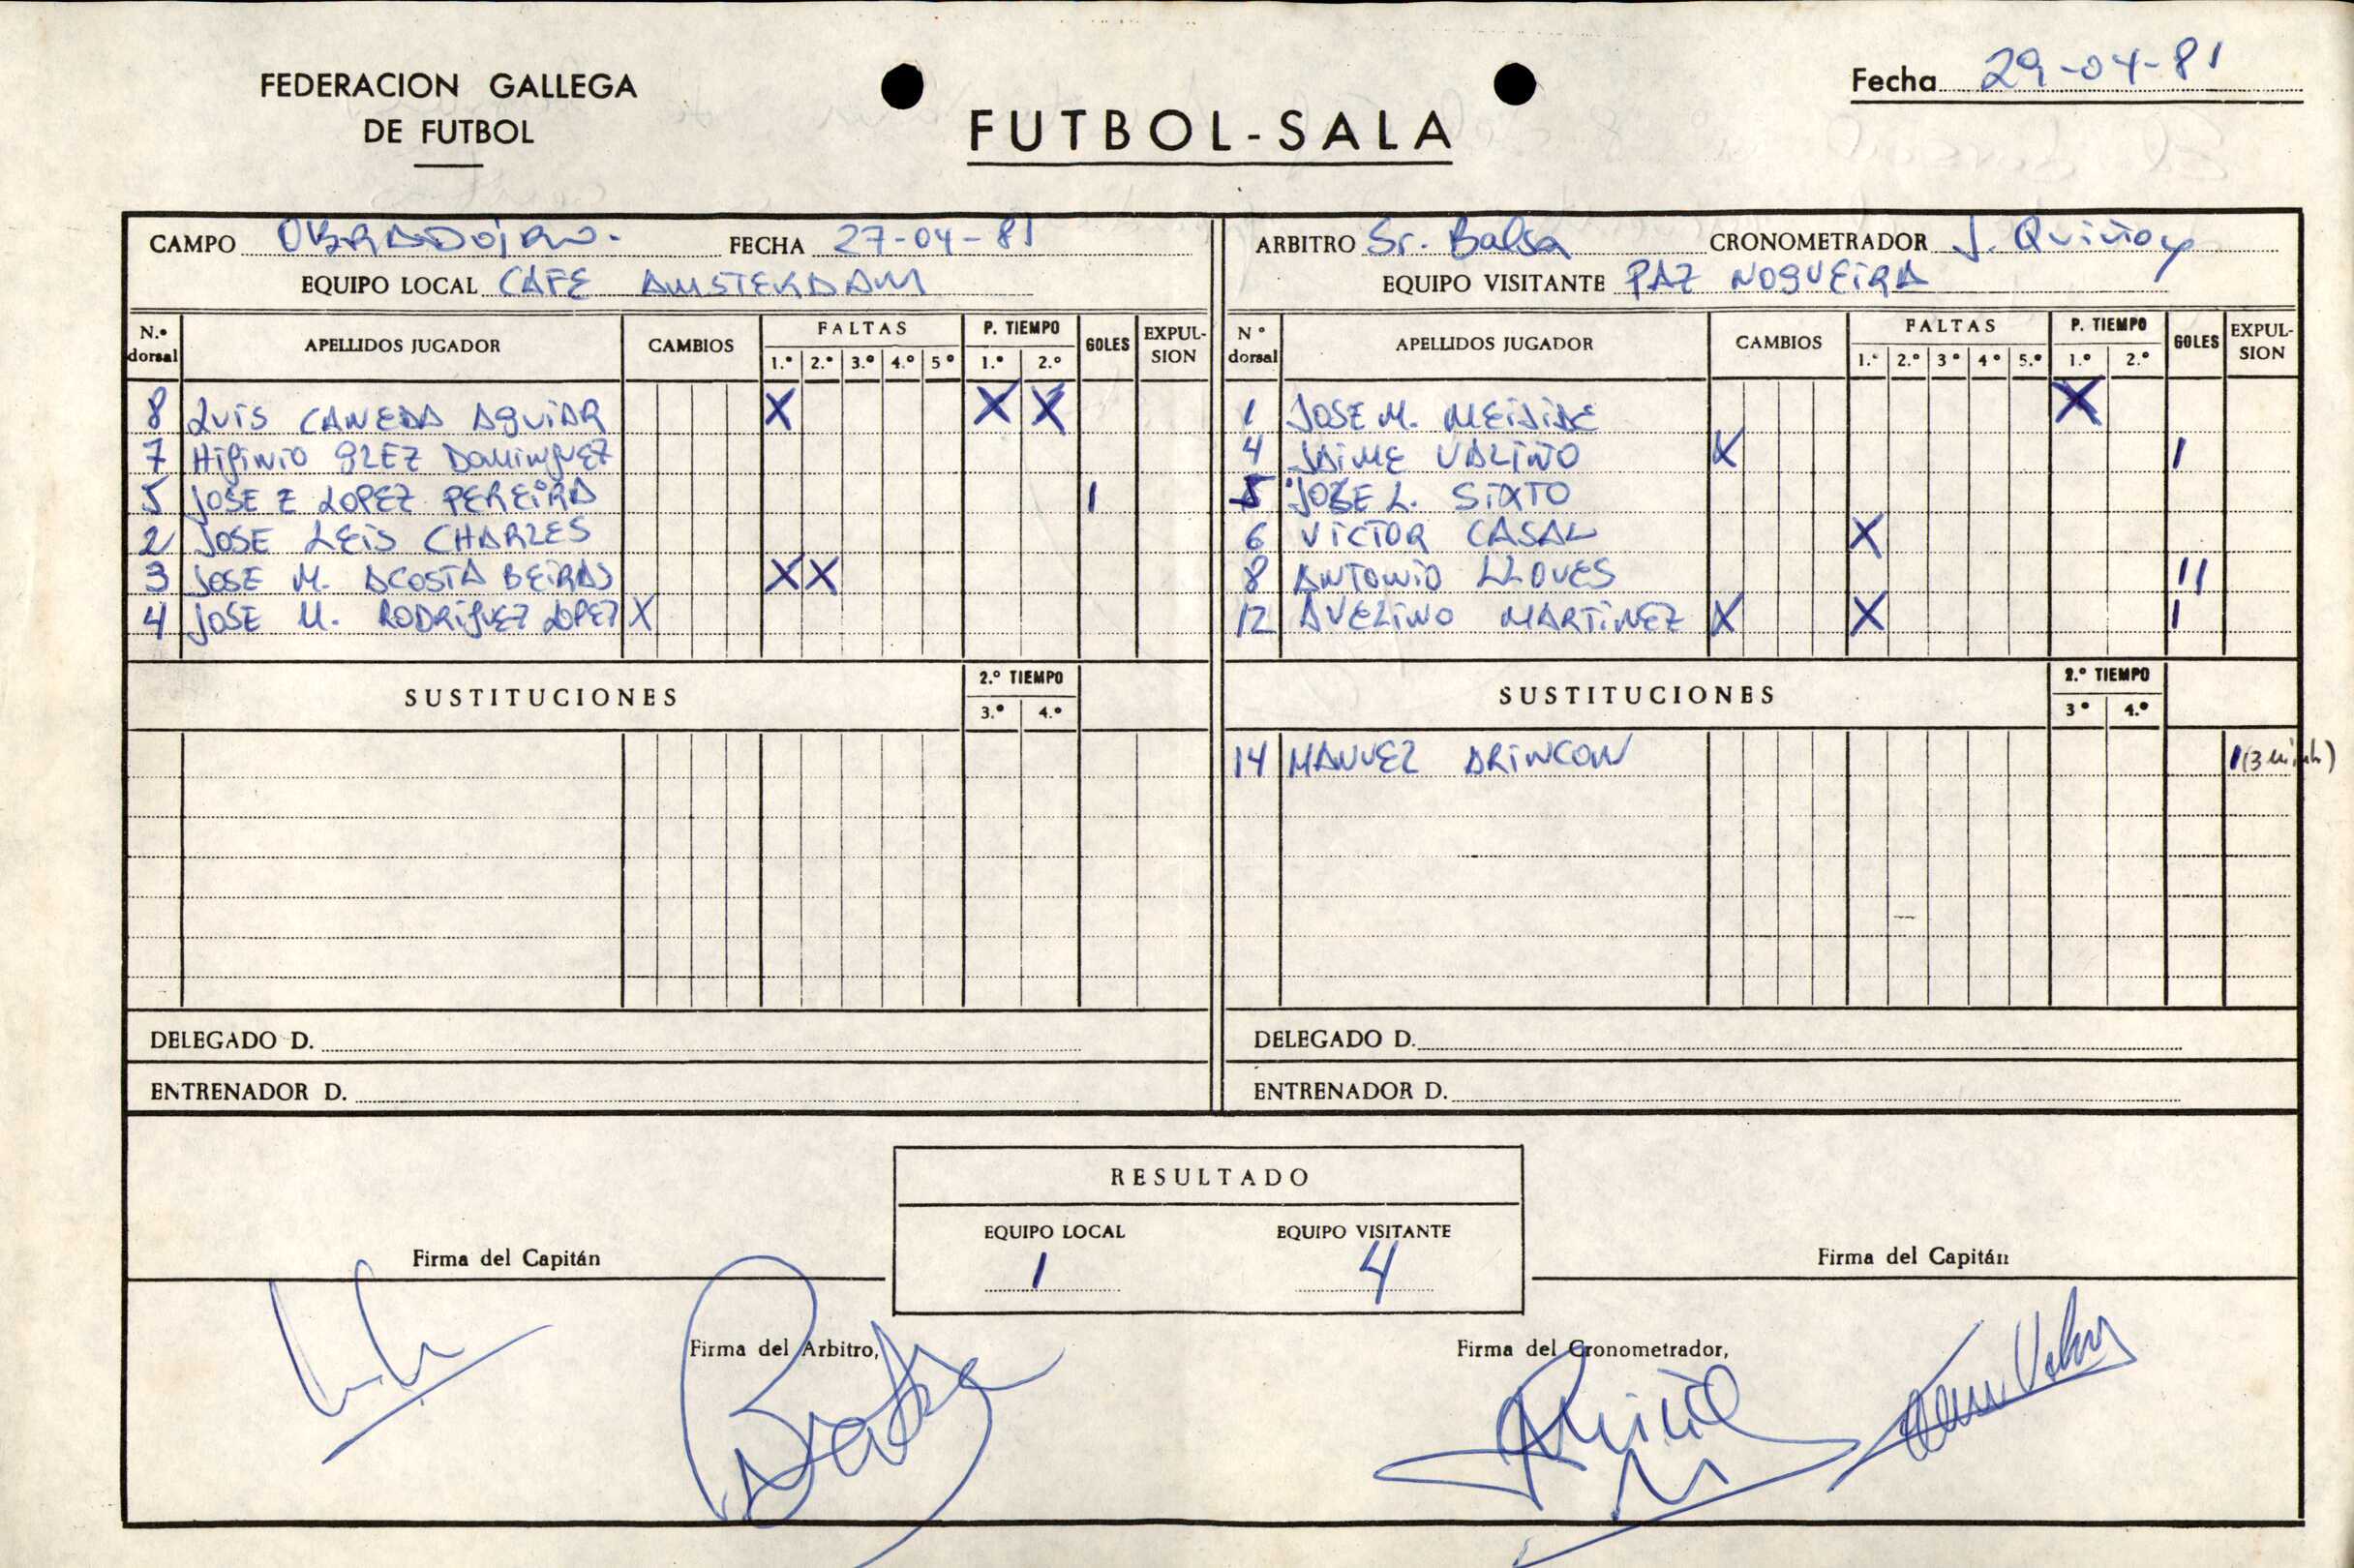 FEDERACION GALLEGA
DE FUTBOL
FUTBOL-SALA
Fecha 29-04-81
CAMPO OBRADOIRO. FECHA 27-04-81
EQUIPO LOCAL CAFE AMSTERDAM
ARBITRO Sr. Balsa CRONOMETRADOR J. Quiñoy
EQUIPO VISITANTE PAZ NOGUEIRA
N.º dorsal APELLIDOS JUGADOR CAMBIOS FALTAS 1.º 2.º 3.º 4.º 5º P. TIEMPO 1.º 2.º GOLES EXPUL-SION
8 LUIS CANEDA AGUIAR X X X
7 HIGINIO GLEZ DOMINGUEZ
5 JOSE E LOPEZ PEREIRA 1
2 JOSE LEIS CHARLES
3 JOSE M. ACOSTA BEIRAS X X
4 JOSE M. RODRIGUEZ LOPEZ X
SUSTITUCIONES 2.º TIEMPO 3.º 4.º
DELEGADO D.
ENTRENADOR D.
Nº dorsal APELLIDOS JUGADOR CAMBIOS FALTAS 1.º 2.º 3º 4º 5.º P. TIEMPO 1.º 2.º GOLES EXPUL-SION
1 JOSE M. MEIJIDE X
4 JAIME VALIÑO X 1
5 JOSE L. SIXTO
6 VICTOR CASAL X
8 ANTONIO LLOVES 11
12 AVELINO MARTINEZ X X 1
SUSTITUCIONES 2.º TIEMPO 3º 4.º
14 MANUEL ARINCON 1 (3 minh)
DELEGADO D.
ENTRENADOR D.
RESULTADO
EQUIPO LOCAL EQUIPO VISITANTE
1 4
Firma del Capitán
Firma del Capitán
Firma del Arbitro,
Firma del Cronometrador,